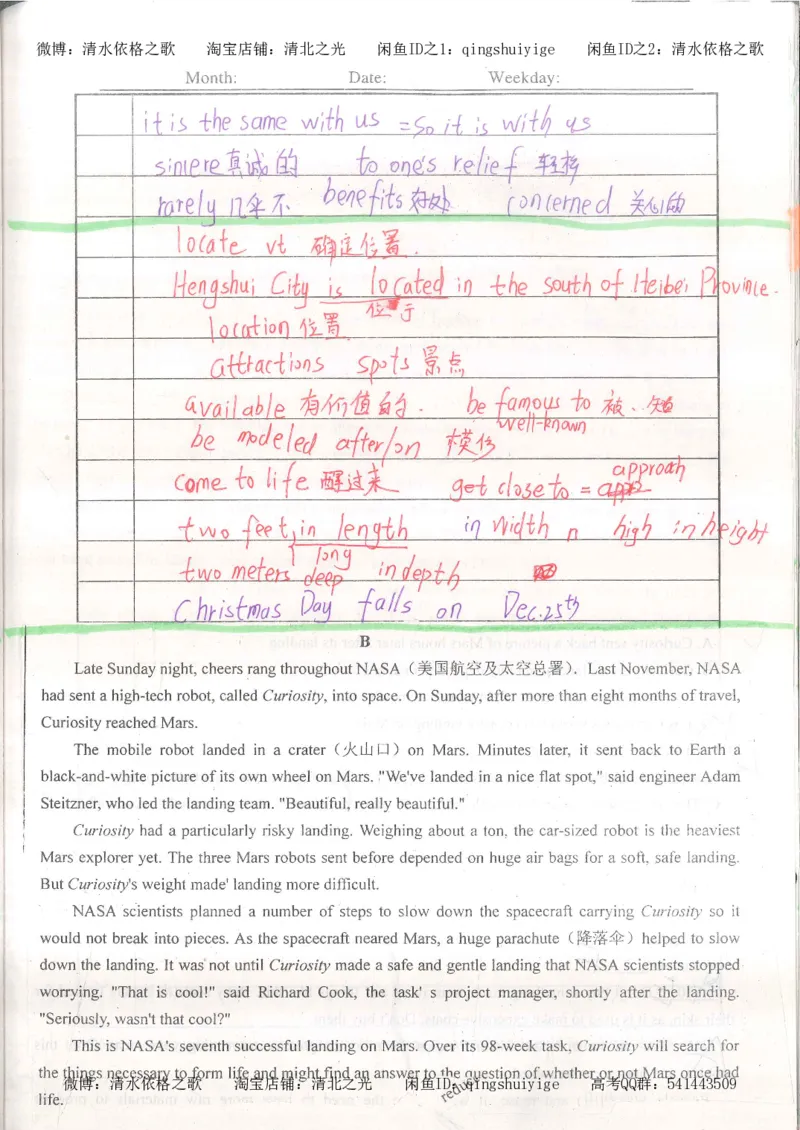 微博：清水依格之歌 淘宝店铺：清北之光 闲鱼ID之1：qingshuiyige 闲鱼ID之2：清水依格之歌
Month: Date: Weekday:
it is the same with us =So it is with us
sincere 真诚的 to one's relief 轻松
rarely 几伞不 benefits 好处 concerned 关心的
locate vt 确定位置.
Hengshui City is located in the south of Heibei Province.
位于
location 位置
attractions spots 景点
available 有价值的. be famous to 被..知
well-known
be modeled after/on 模仿
come to life 醒过来 get close to = approach
two feet in length in width high in height
long
two meters deep in depth
Christmas Day falls on Dec.25th
B
Late Sunday night, cheers rang throughout NASA（美国航空及太空总署）. Last November, NASA
had sent a high-tech robot, called Curiosity, into space. On Sunday, after more than eight months of travel,
Curiosity reached Mars.
The mobile robot landed in a crater（火山口）on Mars. Minutes later, it sent back to Earth a
black-and-white picture of its own wheel on Mars. "We've landed in a nice flat spot," said engineer Adam
Steitzner, who led the landing team. "Beautiful, really beautiful."
Curiosity had a particularly risky landing. Weighing about a ton, the car-sized robot is the heaviest
Mars explorer yet. The three Mars robots sent before depended on huge air bags for a soft, safe landing.
But Curiosity's weight made' landing more difficult.
NASA scientists planned a number of steps to slow down the spacecraft carrying Curiosity so it
would not break into pieces. As the spacecraft neared Mars, a huge parachute（降落伞）helped to slow
down the landing. It was not until Curiosity made a safe and gentle landing that NASA scientists stopped
worrying. "That is cool!" said Richard Cook, the task' s project manager, shortly after the landing.
"Seriously, wasn't that cool?"
This is NASA's seventh successful landing on Mars. Over its 98-week task, Curiosity will search for
the things necessary to form life and might find an answer to the question of whether or not Mars once had
life.
微博：清水依格之歌 淘宝店铺：清北之光 闲鱼ID：qingshuiyige 高考QQ群：541443509